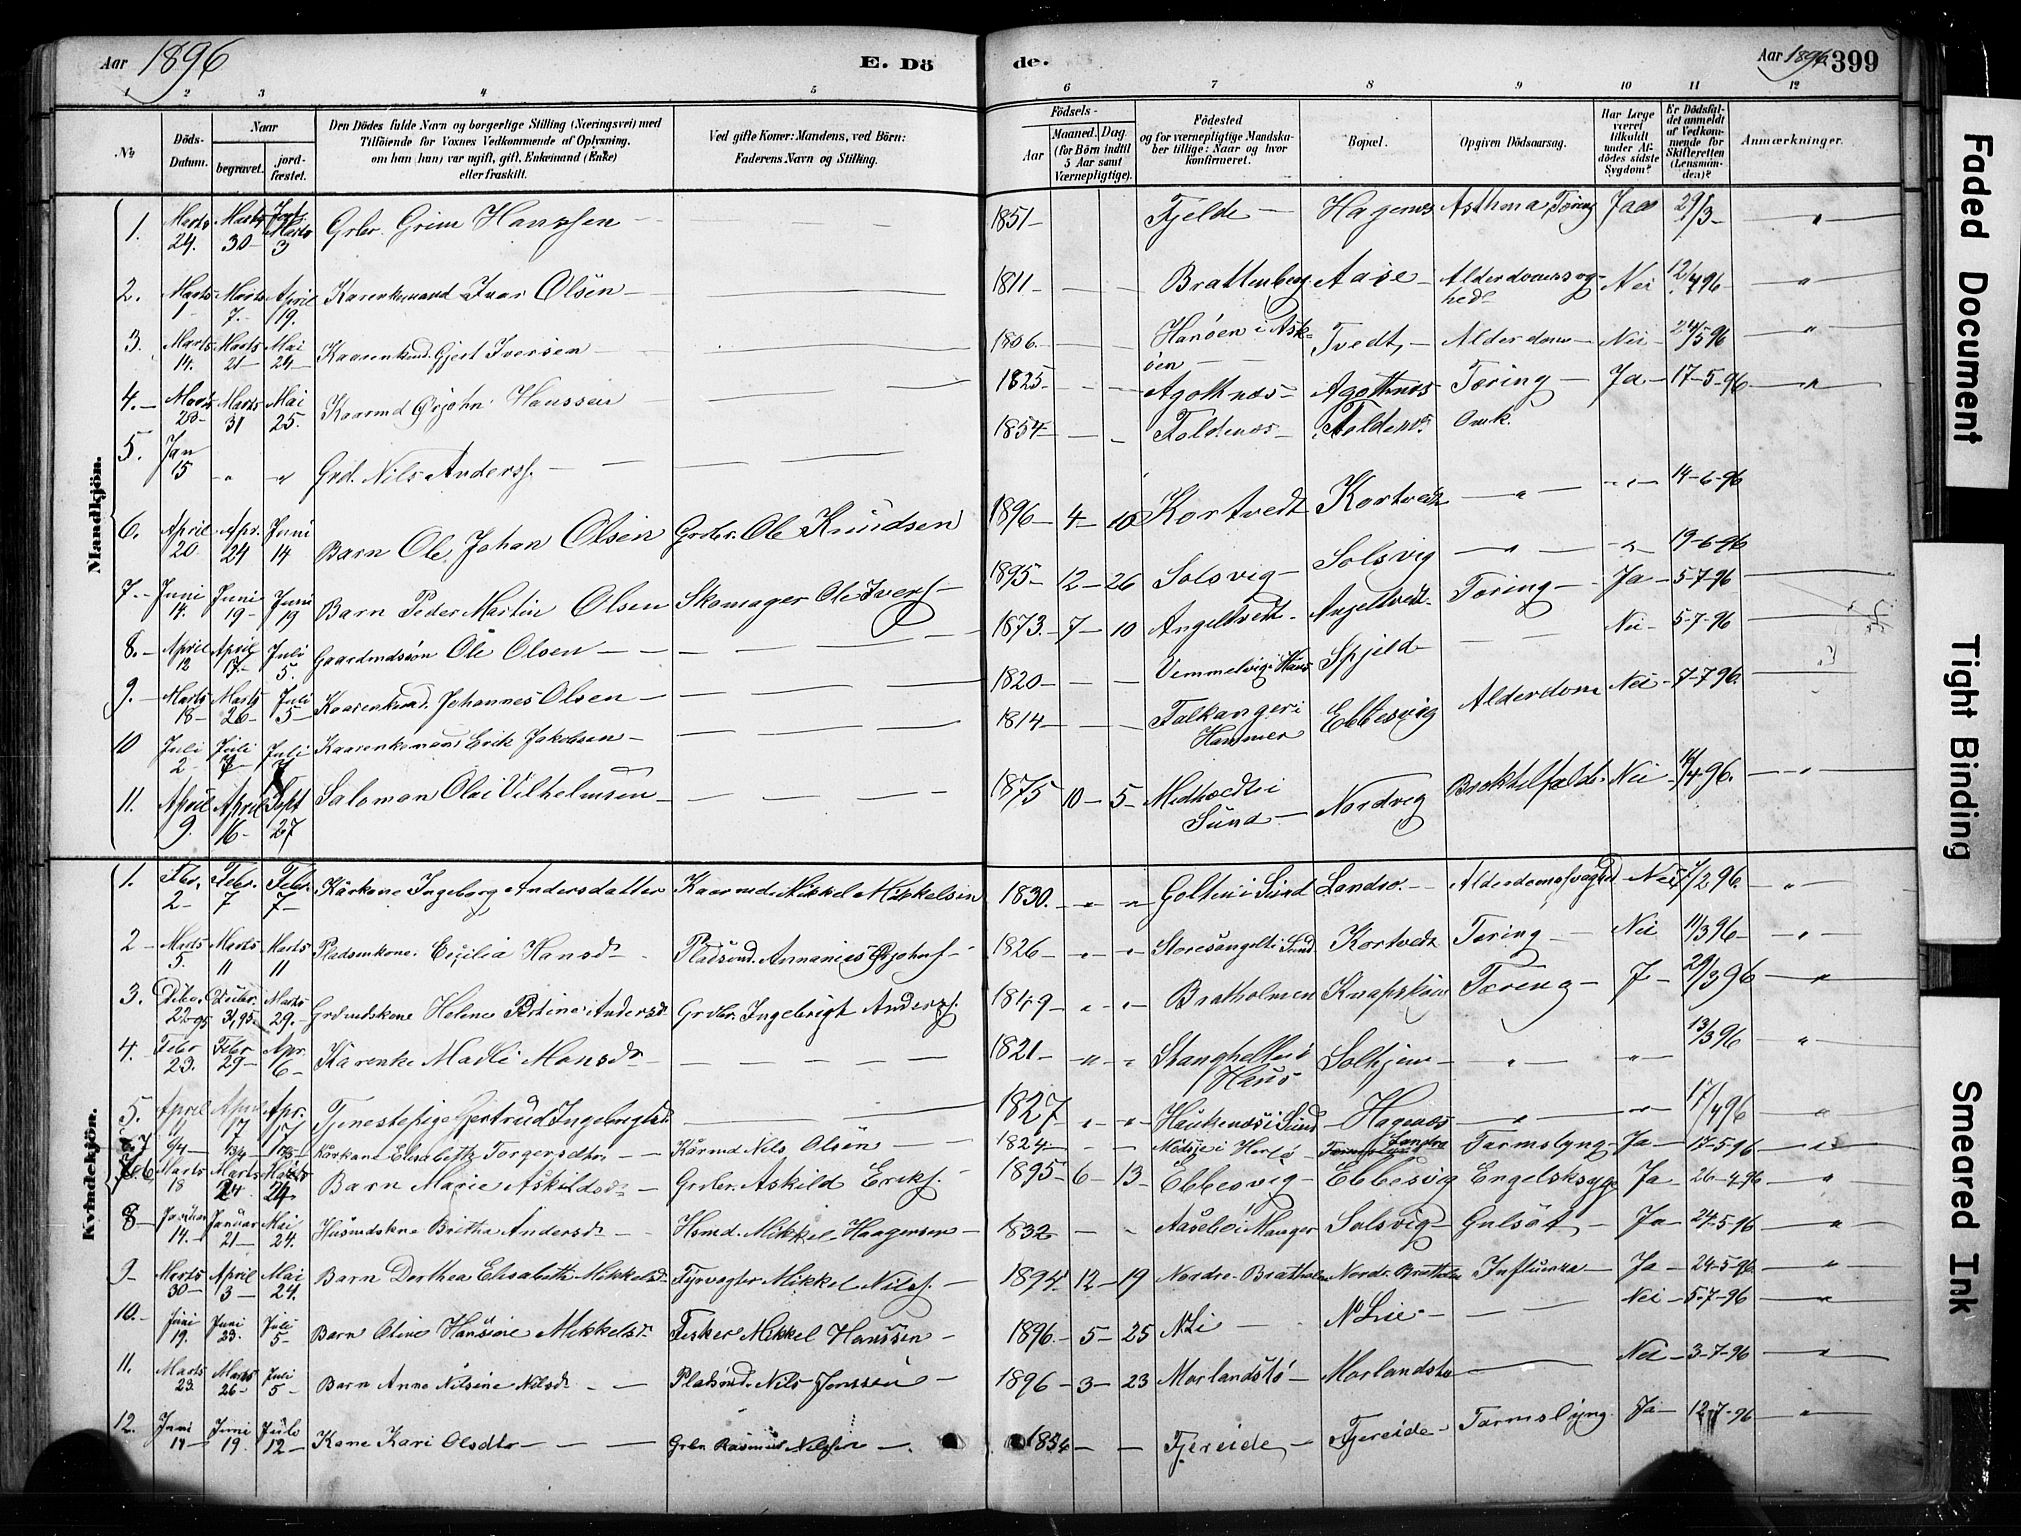 Aar 1896
E. Dö
de.
Aar 1896
399
1 2 3 4 5 6 7 8 9 10 11 12
No
Döds-Datum.
Naar
begravet.
jord-fæstet.
Den Dödes fulde Navn og borgerlige Stilling (Næringsvei) med
Tilföiende for Voxnes Vedkommende af Oplysning,
om han (hun) var ugift, gift, Enkemand (Enke)
eller fraskilt.
Ved gifte Koner: Mandens, ved Börn:
Faderens Navn og Stilling.
Födsels-
Aar
Maaned. Dag.
(for Börn indtil
5 Aar samt
Værnepligtige).
Födested
og for værnepligtige Mandska-
ber tillige: Naar og hvor
konfirmeret.
Bopæl.
Opgiven Dödsaarsag.
Har Læge
været
tilkaldt
under Af-
dödes sidste
Sygdom?
Er Dödsfal-
det anmeldt
af Vedkom-
mende for
Skifteretten
(Lensman-
den)?
Anmærkninger.
Mandkjön.
1. Marts 24. Marts 30 Marts 3 Grbr. Grim Hanssen 1851 Fjelde Hagenæs Asthma Tæring Ja 29/3
2. Marts 1 Marts 7 April 19. Kaarenkemand Ivar Olsen 1811 Brattenberg Aase Alderdomssvaghed Nei 12/4 96
3. Marts 14. Marts 21 Mai 24 Kaarenkmd. Gjert Iversen 1806 Hanöen i Asköen Tvedt Alderdom Nei 24/5 96
4. Marts 23 Marts 31 Mai 25. Kaarmd Ørjohn Hanssen 1825 Agothnæs Agotnæs Tæring Ja 17-5-96
5. Jan 15 " " Grd. Nils Anderss. 1854 Foldenæs Foldenæs Omk.
6. April 20. Apr. 24 Juni 14 Barn Ole Johan Olsen Grdbr. Ole Knudsen 1896 4 10 Kortvedt Kortvedt " " 14-6-96
7. Juni 14. Juni 19 Juni 19 Barn Peder Martin Olsen Skomager Ole Iverss. 1895 12 26 Solsvig Solsvig " " 19-6-96
8. April 12 April 17. Juli 5. Gaardmdssön Ole Olsen 1873 7 10 Angeltvedt Angeltvedt Tæring Ja 5-7-96
9. Marts 18 Marts 26 Juli 5 Kaarenkmd. Johannes Olsen 1820 Vemmelvig i Haus Spjeld Nei 5-7-96
10 Juli 2 Juli 7 Juli 7 Kaarenkeman Erik Jakobsen 1814 Falkanger i Hammer Ebbesvig Alderdom Nei 7-7-96.
11. April 9. April 16 Sept 27 Salomon Olai Vilhelmsen 1875 10 5 Midttvedt i Sund Nordvig Nei 16/4 96.
Kvindekjön.
1. Febr. 2 Febr. 7 Febr. 7 Kårkone Ingeborg Andersdatter Kaarmd. Mikkel Mikkelsen 1830. " " Golten i Sund Landro Alderdomssvaghed Nei 7/2 96. "
2 Marts 5. Marts 11 Marts 11 Pladsenkone Cecilia Hansd. Pladsmd. Annanias Ørjohns. 1826 " " Storesangelt i Sund Kortvedt Tæring Nei 11/3 96 "
3. Debr. 22 95 Debr. 31, 95. Marts 29. Grdmdskone Helene Pertine Andersd. Grdbr. Ingebrigt Anderss. 1849 " " Bratholmen Knapskog Tæring J 29/3 96 "
4. Febr 23. Febr 29 Apr. 6 Kårenke Madli Monsd. 1821 " " Stanghelle i Haus Solhjem " " 13/3 96 "
5. April 11 April 17 Apr. 17 Tjenestepige Gjertrud Ingebrigtsd. 1827 " " Haukenæs i Sund Hagenæs " " 17/4 96 "
7 Kårkone Elisabeth Torgersdtr Kårmd Nils Olsen 1824 Midsje i Herlö Landro Tarmslyng Ja 17-5-96
6 Marts 18 Marts 24. 24 Barn Marie Askildsd. Grdbr. Askild Eriks. 1895 6 13 Ebbesvig Ebbesvig Engelsksyge Ja 26-4-96 "
8 Januar 14. Januar 21 Mai 24. Husmdskone Britha Andersd. Hsmd. Mikkel Haagensen 1832 Aasebö i Manger Solsvig Gulsot Ja 24-5-96 "
9 Marts 30 April 3 Mai 24. Barn Dorthea Elisabeth Mikkelsd. Fyrvogter Mikkel Nilss. 1894 12 19 Nordre Bratholm Nordr. Bratholm Influenza Ja 24-5-96 "
10. Juni 19. Juni 23. Juli 5 Barn Oline Hansine Mikkelsd. Fisker Mikkel Hanssen 1896 5 25 N Li N Lie Nei 5-7-96 "
11. Marts 23. Marts 26 Juli 5 Barn Anna Nilsine Nilsd. Pladsmd. Nils Jonssen 1896 3 23 Morlandstö Morlandstø Nei 3-7-96 "
12. Juni 14 Juni 19. Juli 12 Kone Kari Olsdtr Grbr Rasmus Nilssen 1854 Fjereide Fjereide Tarmslyng. Ja 12-7-96 "
Faded Document
Tight Binding
Smeared Ink